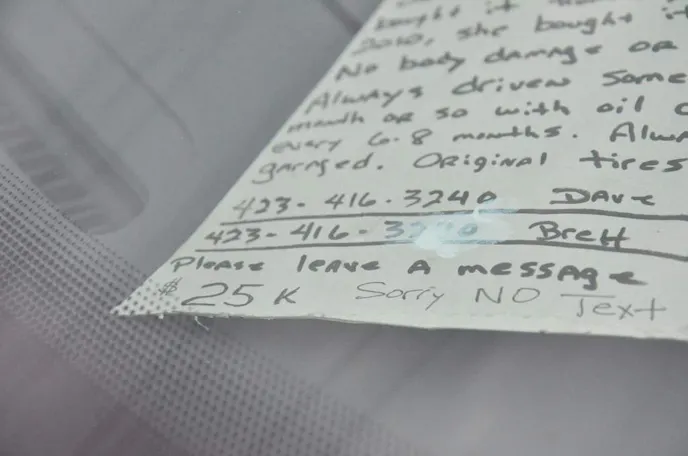 bought it
2010, she bought it
No body damage or
Always driven some
month or so with oil
every 6-8 months. Alwa
garaged. Original tires
423-416-3240 Dave
423-416- Brett
Please leave a message
$25K Sorry NO Text